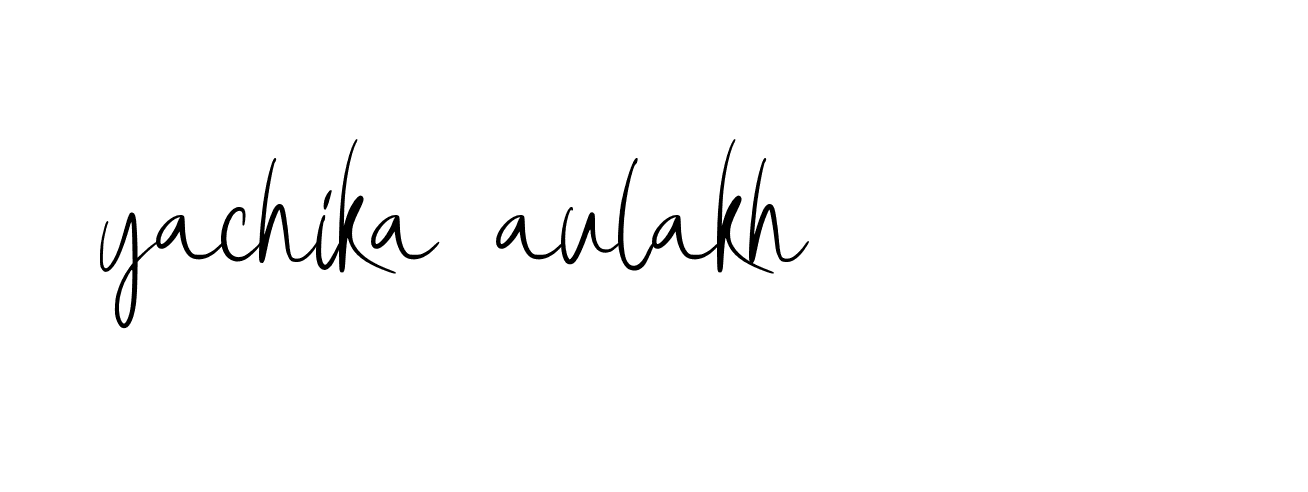 yachika aulakh